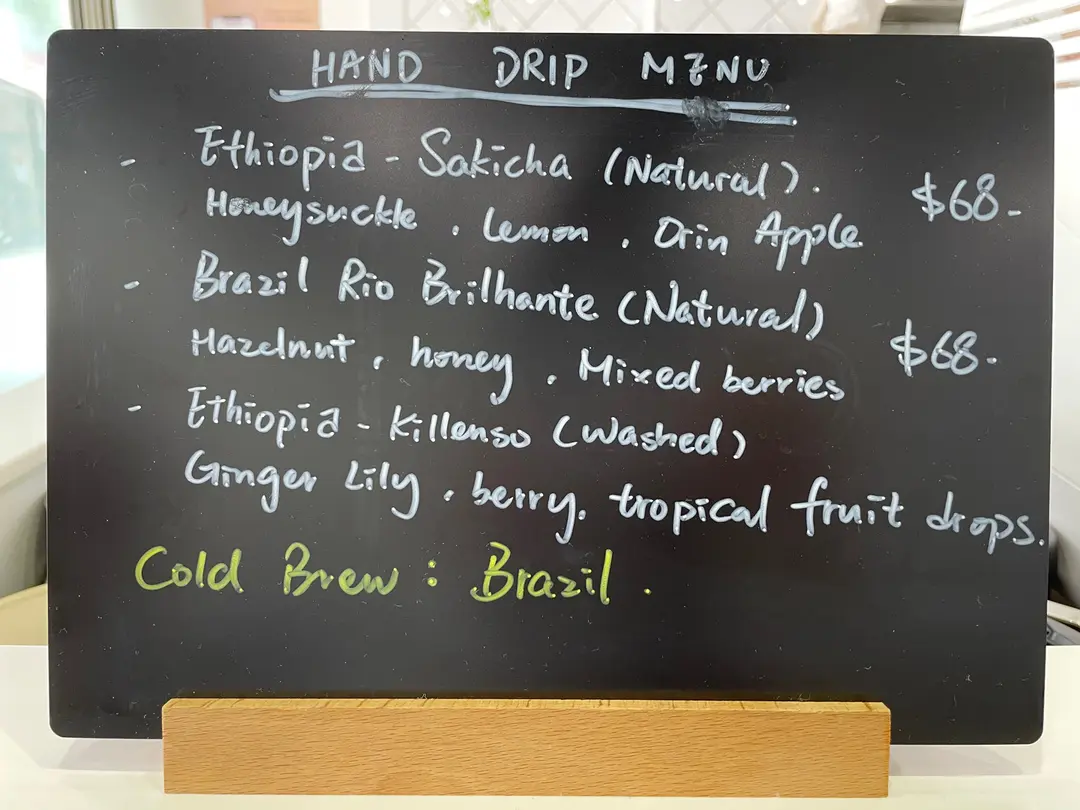 HAND DRIP MENU
- Ethiopia - Sakicha (Natural). $68-
Honeysuckle, Lemon, Orin Apple
- Brazil Rio Brilhante (Natural)
Hazelnut, honey, Mixed berries $68-
- Ethiopia - Killenso (Washed)
Ginger Lily, berry, tropical fruit drops.
Cold Brew: Brazil.